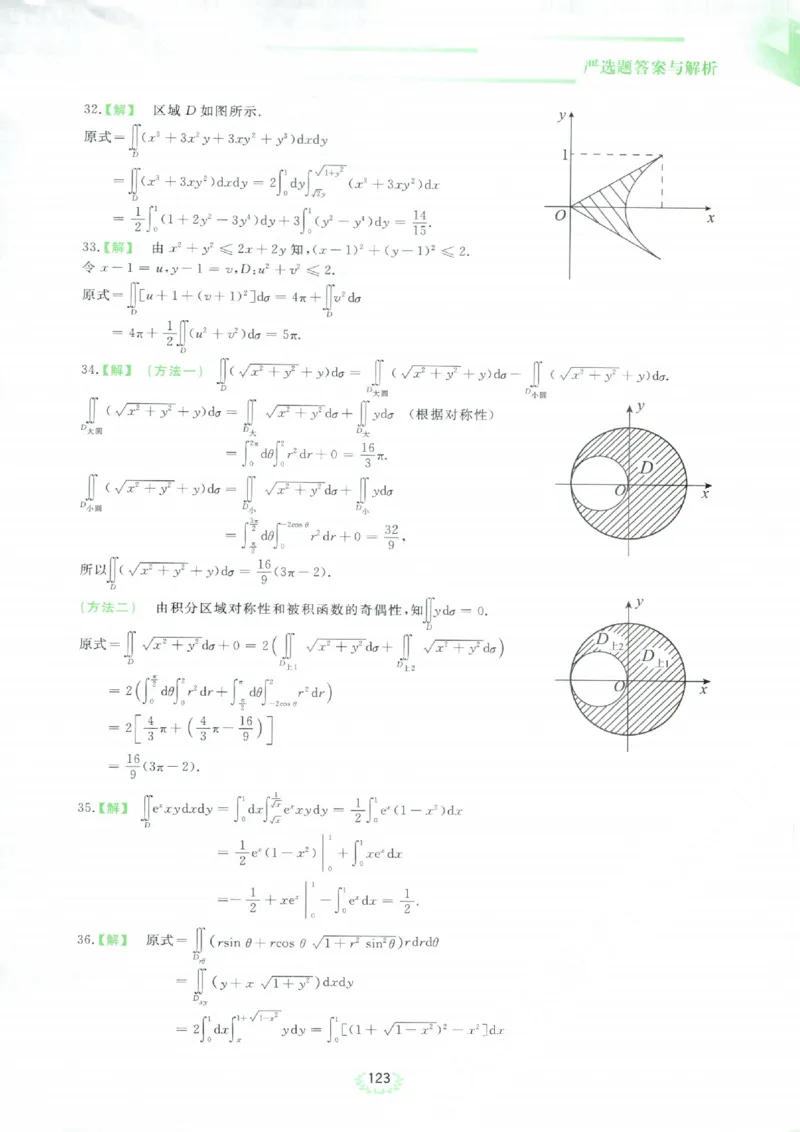 严选题答案与解析
32.【解】 区域 D 如图所示.
原式=∬_D(x³+3x²y+3xy²+y³)dxdy
=∬_D(x³+3xy²)dxdy=2∫₀¹dy∫_{√2y}^{√(1+y²)}(x³+3xy²)dx
=1/2∫₀¹(1+2y²-3y⁴)dy+3∫₀¹(y²-y⁴)dy=14/15.
y
1
O
x
33.【解】 由 x²+y²≤2x+2y 知,(x-1)²+(y-1)²≤2.
令 x-1=u,y-1=v,D:u²+v²≤2.
原式=∬_D[u+1+(v+1)²]dσ=4π+∬_D v²dσ
=4π+1/2∬_D(u²+v²)dσ=5π.
34.【解】 (方法一) ∬_D(√(x²+y²)+y)dσ=∬_{D大圆}(√(x²+y²)+y)dσ-∬_{D小圆}(√(x²+y²)+y)dσ.
∬_{D大圆}(√(x²+y²)+y)dσ=∬_{D大}√(x²+y²)dσ+∬_{D大}ydσ (根据对称性)
=∫₀^{2π}dθ∫₀²r²dr+0=16/3π.
∬_{D小圆}(√(x²+y²)+y)dσ=∬_{D小}√(x²+y²)dσ+∬_{D小}ydσ
=∫_{π/2}^{3π/2}dθ∫₀^{-2cos θ}r²dr+0=32/9,
所以∬_D(√(x²+y²)+y)dσ=16/9(3π-2).
y
D
O
x
(方法二) 由积分区域对称性和被积函数的奇偶性,知∬_D ydσ=0.
原式=∬_D√(x²+y²)dσ+0=2(∬_{D上1}√(x²+y²)dσ+∬_{D上2}√(x²+y²)dσ)
=2(∫₀^{π/2}dθ∫₀²r²dr+∫_{π/2}^{π}dθ∫_{-2cos θ}²r²dr)
=2[4/3π+(4/3π-16/9)]
=16/9(3π-2).
y
D上2
D上1
O
x
35.【解】 ∬_D eˣxydxdy=∫₀¹dx∫_{√x}^{1/√x}eˣxydy=1/2∫₀¹eˣ(1-x²)dx
=1/2eˣ(1-x²)|₀¹+∫₀¹xeˣdx
=-1/2+xeˣ|₀¹-∫₀¹eˣdx=1/2.
36.【解】 原式=∬_{D_{rθ}}(rsin θ+rcos θ√(1+r²sin²θ))rdrdθ
=∬_{D_{xy}}(y+x√(1+y²))dxdy
=2∫₀¹dx∫ₓ^{1+√(1-x²)}ydy=∫₀¹[(1+√(1-x²))²-x²]dx
123